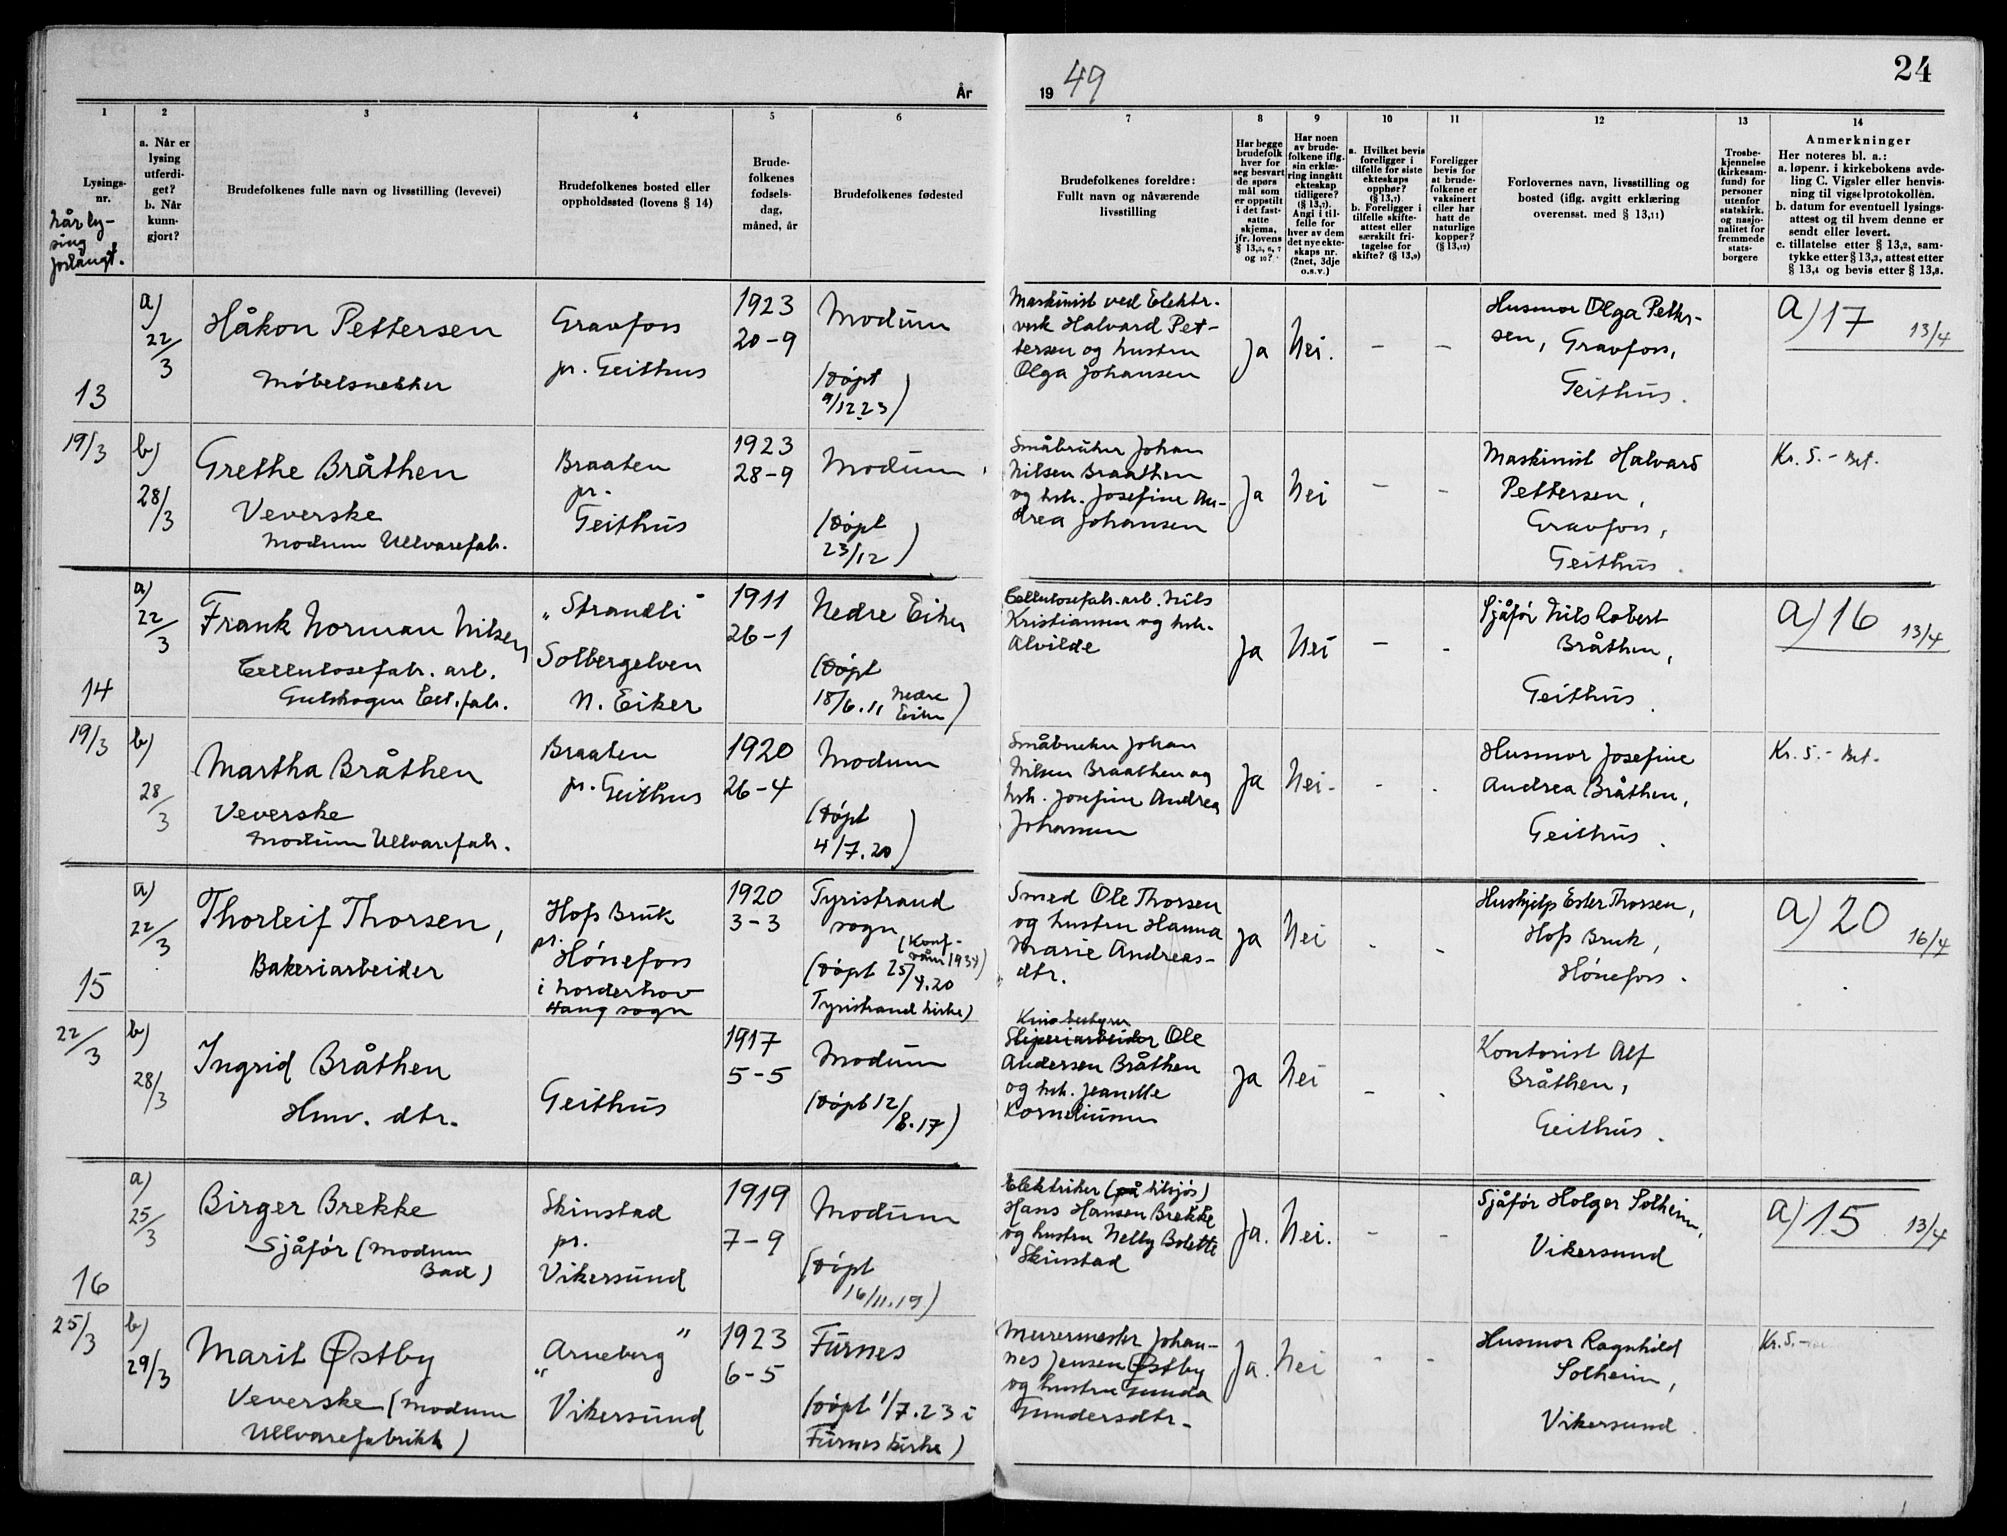 24
År
19 49
1
Lysings-
nr.
Når ly-
sing
forlangt.
2
a. Når er
lysing
utferdi-
get?
b. Når
kunn-
gjort?
3
Brudefolkenes fulle navn og livsstilling (levevei)
4
Brudefolkenes bosted eller
oppholdssted (lovens § 14)
5
Brude-
folkenes
fødsels-
dag,
måned, år
6
Brudefolkenes fødested
7
Brudefolkenes foreldre:
Fullt navn og nåværende
livsstilling
8
Har begge
brudefolk
hver for
seg besvart
de spørs
mål som
er oppstilt
i det fast-
satte
skjema,
jfr. lovens
§ 13,5, 6, 7
og 10?
9
Har noen
av brude-
folkene iflg.
sin erklæ-
ring inngått
ekteskap
tidligere?
(§ 13,7).
Angi i til-
felle for
hver av dem
det nye ekte-
skaps nr.
(2net, 3dje
o.s.v.)
10
a. Hvilket bevis
foreligger i
tilfelle for siste
ekteskaps
opphør?
(§ 13,7)
b. Foreligger i
tilfelle skifte-
attest eller
særskilt fri-
tagelse for
skifte? (§ 13,9)
11
Foreligger
bevis for
at brude-
folkene er
vaksinert
eller har
hatt de
naturlige
kopper?
(§ 13,12)
12
Forlovernes navn, livsstilling og
bosted (iflg. avgitt erklæring
overensst. med § 13,11)
13
Trosbe-
kjennelse
(kirkesam-
fund) for
personer
utenfor
statskirk.
og nasjo-
nalitet for
fremmede
stats-
borgere
14
Anmerkninger
Her noteres bl. a.:
a. løpenr. i kirkebokens avde-
ling C. Vigsler eller henvis-
ning til vigselprotokollen.
b. datum for eventuell lysings-
attest og til hvem denne er
sendt eller levert.
c. tillatelse etter § 13,2, sam-
tykke etter § 13,3, attest etter
§ 13,4 og bevis etter § 13,8.
13
a)
22/3
Håkon Pettersen
Møbelsnekker
Gravfoss
pr. Geithus
1923
20-9
Modum
(døpt
9/12 23)
Maskinist ved Elektr.
verk Halvard Pet-
tersen og hustru
Olga Johansen
Ja
Nei.
-
-
Husmor Olga Petter-
sen, Gravfoss,
Geithus.
a) 17 13/4
19/3
b)
28/3
Grethe Bråthen
Veverske
Modum Ullvarefabr.
Braaten
pr.
Geithus
1923
28-9
Modum
(døpt
23/12)
Småbruker Johan
Nilsen Braathen
og hstr. Josefine An-
drea Johansen
Ja
Nei
-
-
Maskinist Halvard
Pettersen,
Gravfoss,
Geithus.
Kr. 5.- Bet.
14
a)
22/3
Frank Norman Nilsen
Cellulosefabr. arb.
Gulskogen Cell. fabr.
"Strandli"
Solbergelven
N. Eiker
1911
26-1
Nedre Eiker
(døpt
18/6.11 Nedre
Eiker)
Cellulosefabr. arb. Nils
Kristiansen og hstr.
Alvilde
Ja
Nei
-
-
Sjåfør Nils Robert
Bråthen,
Geithus.
a) 16 13/4
19/3
b)
28/3
Martha Bråthen
Veverske
Modum Ullvarefabr.
Braaten
pr. Geithus
1920
26-4
Modum
(døpt
4/7.20)
Småbruker Johan
Nilsen Braathen og
hstr. Josefine Andrea
Johansen
Ja
Nei-
-
-
Husmor Josefine
Andrea Bråthen,
Geithus.
Kr. 5.- Bet.
15
a)
22/3
Thorleif Thorsen,
Bakeriarbeider
Hofs Bruk
pr.
Hønefoss
i Norderhov
Haug sogn
1920
3-3
Tyristrand
sogn
(Konf.
1934)
(døpt 25/4.20
Tyristrand kirke)
Smed Ole Thorsen
og hustru Hanna
Marie Andreas-
dtr.
Ja
Nei
-
-
Hushjelp Ester Thorsen,
Hofs Bruk,
Hønefoss.
a) 20 16/4
22/3
b)
28/3
Ingrid Bråthen
Hmv. dtr.
Geithus
1917
5-5
Modum
(døpt 12/8.17)
Kinobestyrer
Sliperiarbeider Ole
Andersen Bråthen
og hstr. Jeanette
Korneliussen
Ja
Nei
-
-
Kontorist Alf
Bråthen,
Geithus.
16
a)
25/3
Birger Brekke
Sjåfør (Modum
Bad)
Skinstad
pr.
Vikersund
1919
7-9
Modum
(døpt
16/11.19)
Elektriker (på tilsjøs)
Hans Hansen Brekke
og hustru Nelly Bolette
Skinstad
Ja.
Nei.
-
-
Sjåfør Holger Solheim,
Vikersund
a) 15 13/4
25/3
b)
29/3
Marit Østby
Veverske (Modum
Ullvarefabrikk)
"Arneberg"
Vikersund
1923
6-5
Furnes
(døpt 1/7.23 i
Furnes kirke)
Murermester Johan-
nes Jensen Østby
og hustru Gunda
Gundersdtr.
Ja.
Nei
-
-
Husmor Ragnhild
Solheim,
Vikersund.
Kr. 5.-